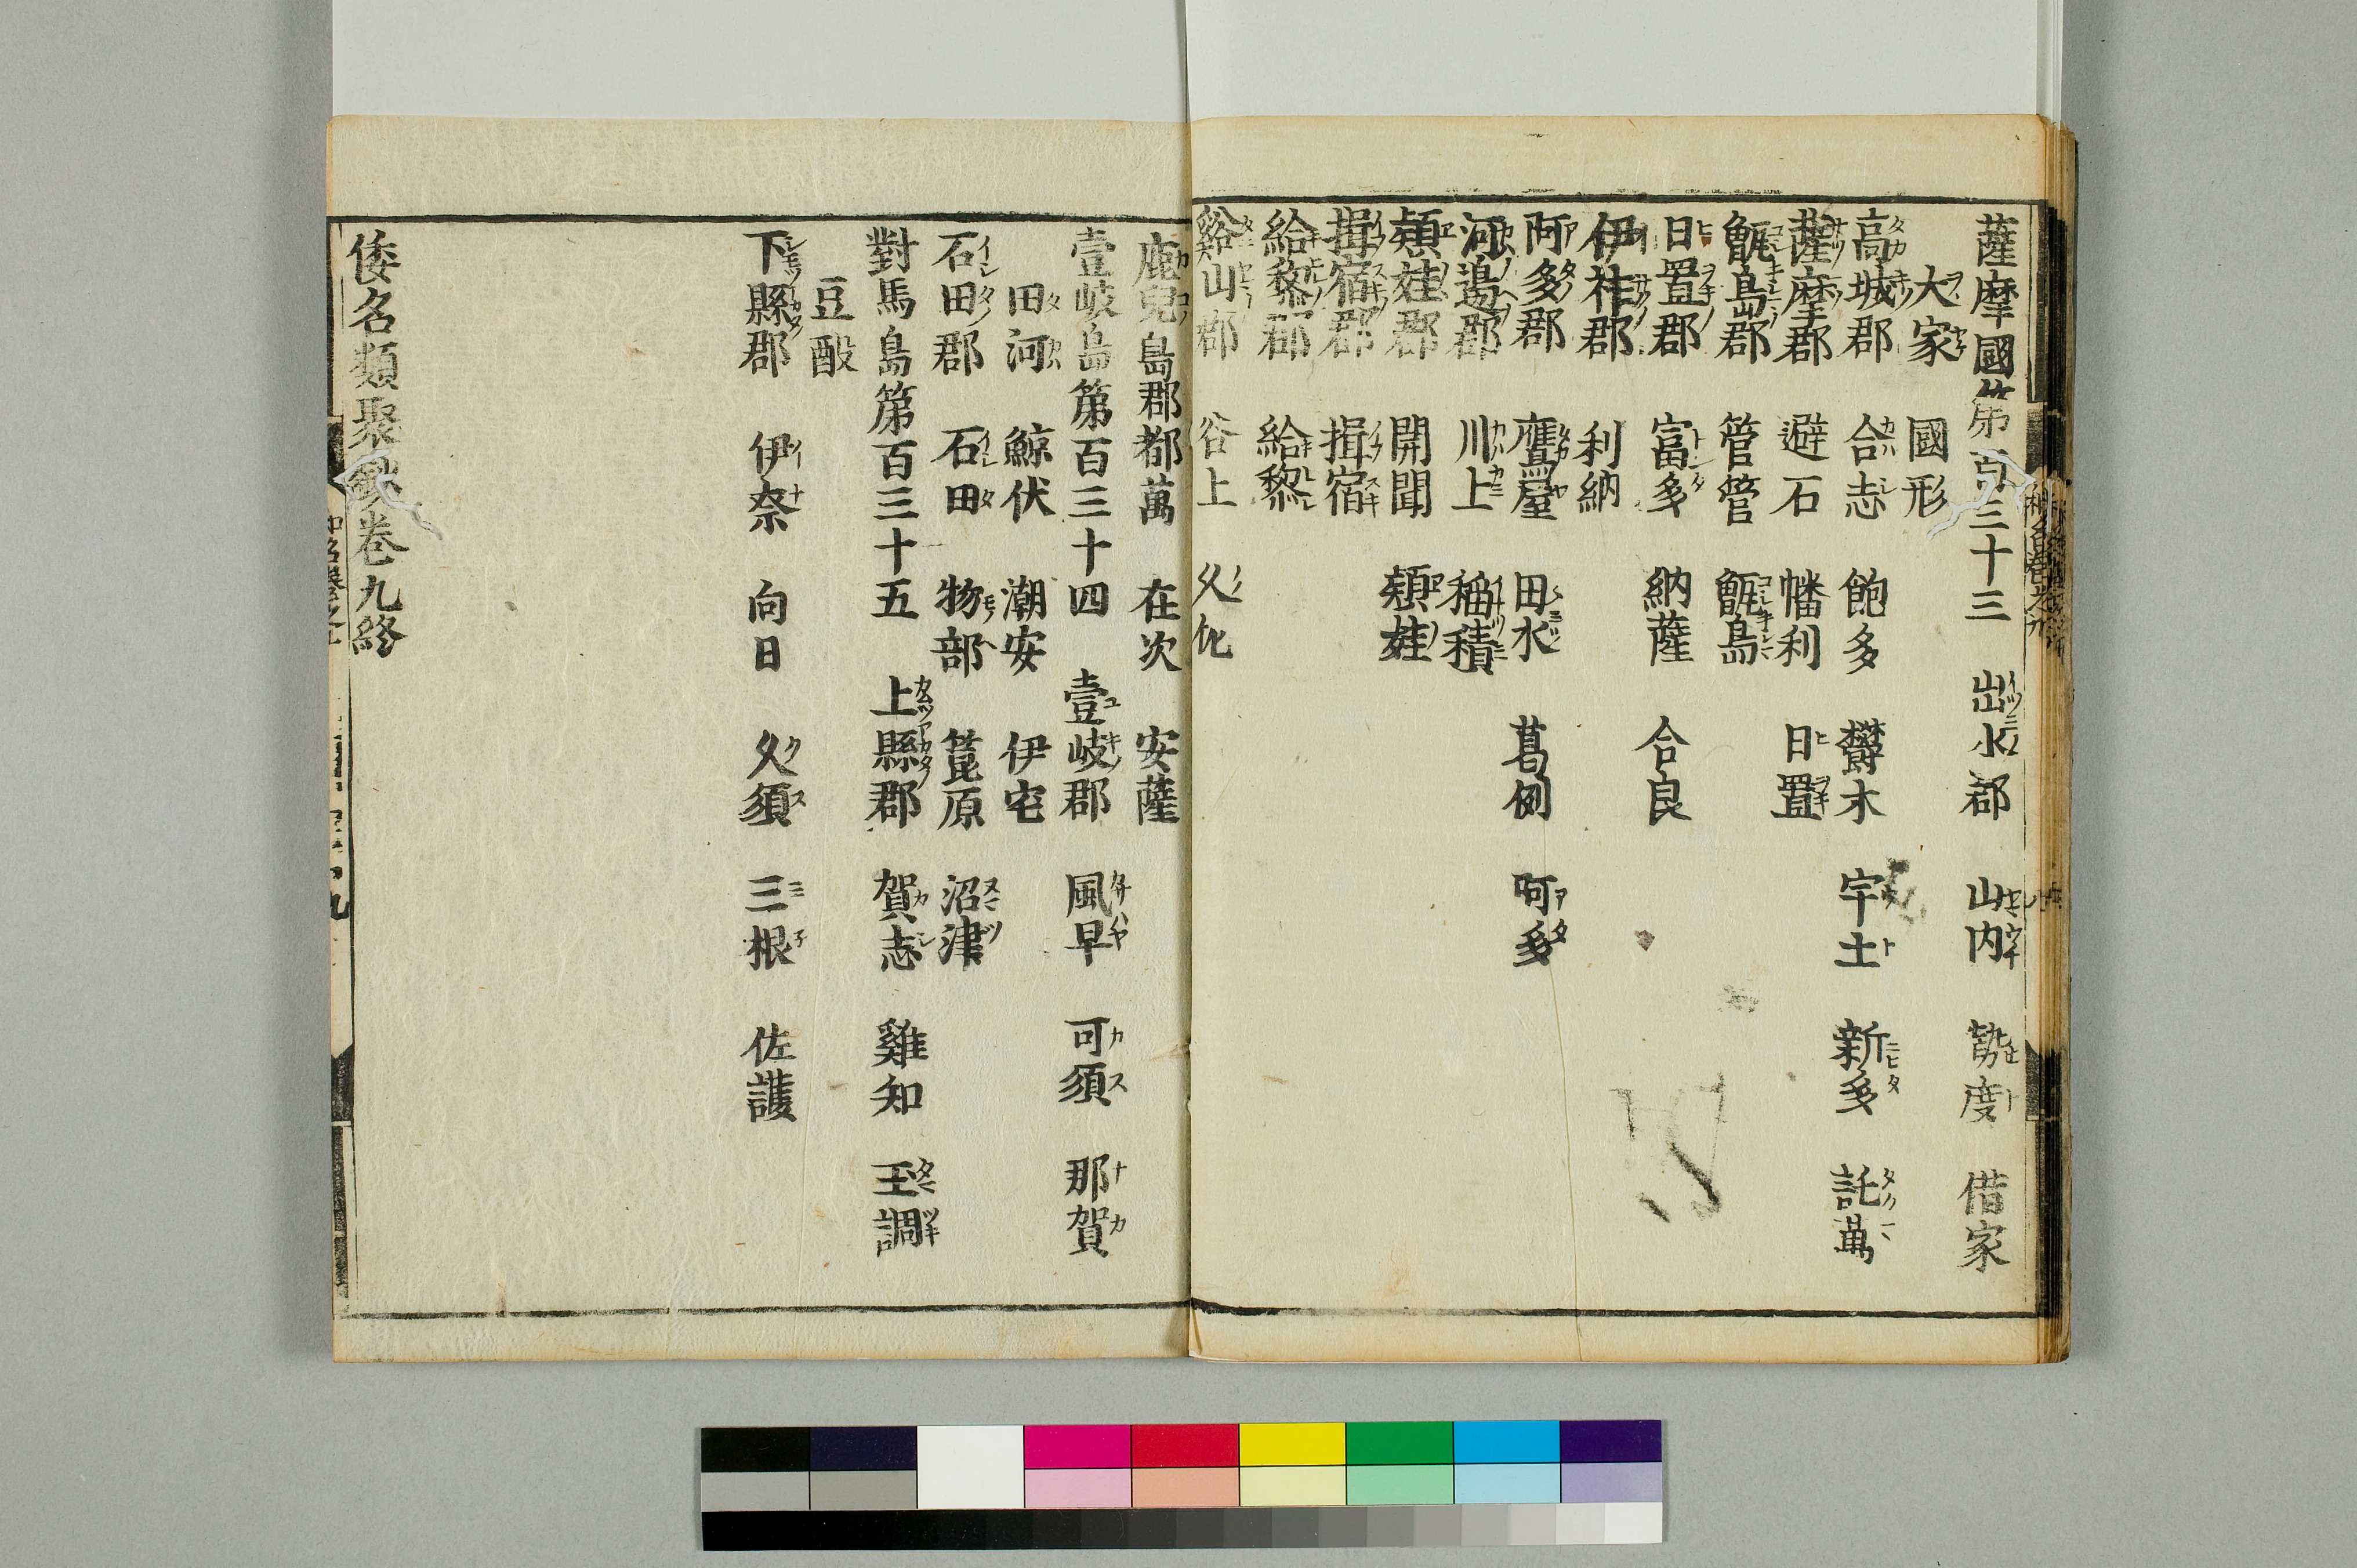 薩摩國第百三十三 出水郡 山内 勢度 借家
大家 國形
高城郡 合志 飽多 欝木 宇土 新多 託萬
薩摩郡 避石 幡利 日置
甑島郡 管管 甑島
日置郡 富多 納薩 合良
伊祚郡 利納
阿多郡 鷹屋 田水 葛例 呵多
河邊郡 川上 稲積
頴娃郡 開聞 頴娃
揖宿郡 揖宿
給黎郡 給黎
谿山郡 谷上 久化
鹿兒島郡 都萬 在次 安薩
壹岐島第百三十四 壹岐郡 風早 可須 那賀
田河 鯨伏 潮安 伊宅
石田郡 石田 物部 筥原 沼津
對馬島第百三十五 上縣郡 賀志 雞知 王調
豆酘
下縣郡 伊奈 向日 久須 三根 佐護
倭名類聚鈔卷九終